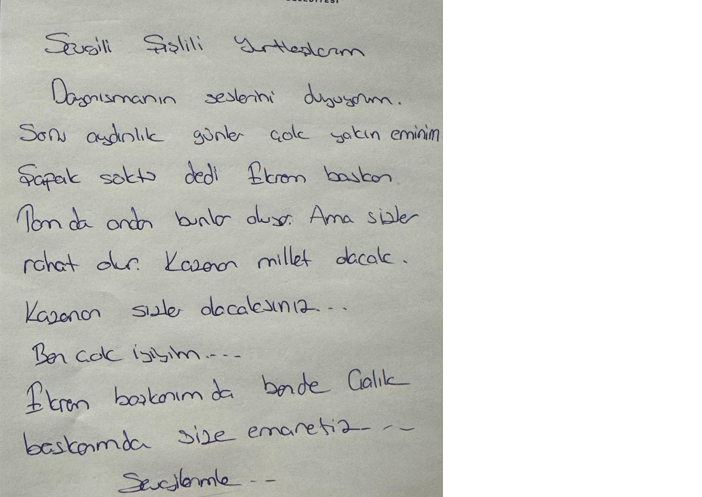 Sevgili Şişlili Yurttaşlarım
Dayanışmanın seslerini duyuyorum.
Sonu aydınlık günler çok yakın eminim
Şafak söktü dedi Ekrem başkan.
Tam da ondan bunlar oluyor. Ama sizler
rahat olun. Kazanan millet olacak.
Kazanan sizler olacaksınız...
Ben çok iyiyim....
Ekrem başkanım da bende Çalık
başkanımda size emanetiz...
Sevgilerimle..